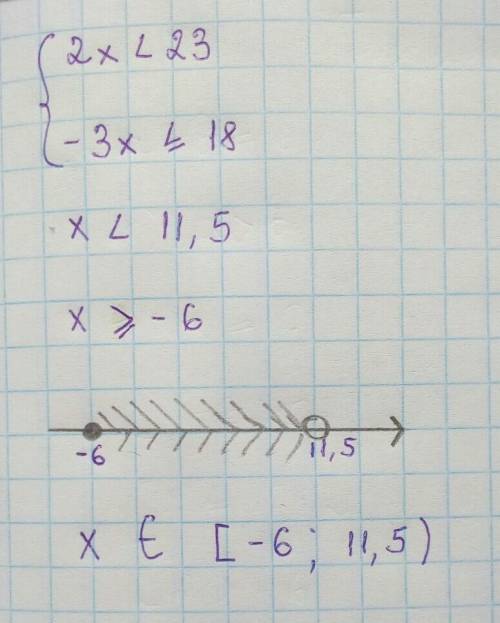 2x < 23
-3x ≤ 18
x < 11,5
x ⩾ -6
-6 11,5
x ∈ [-6; 11,5)